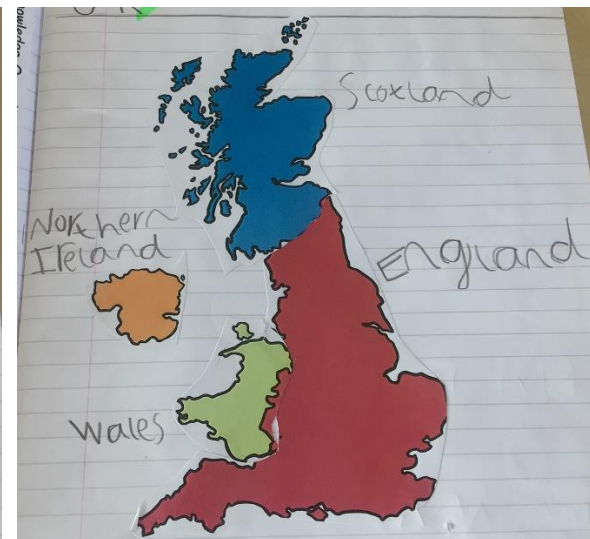 Scotland
Northern
Ireland
England
Wales